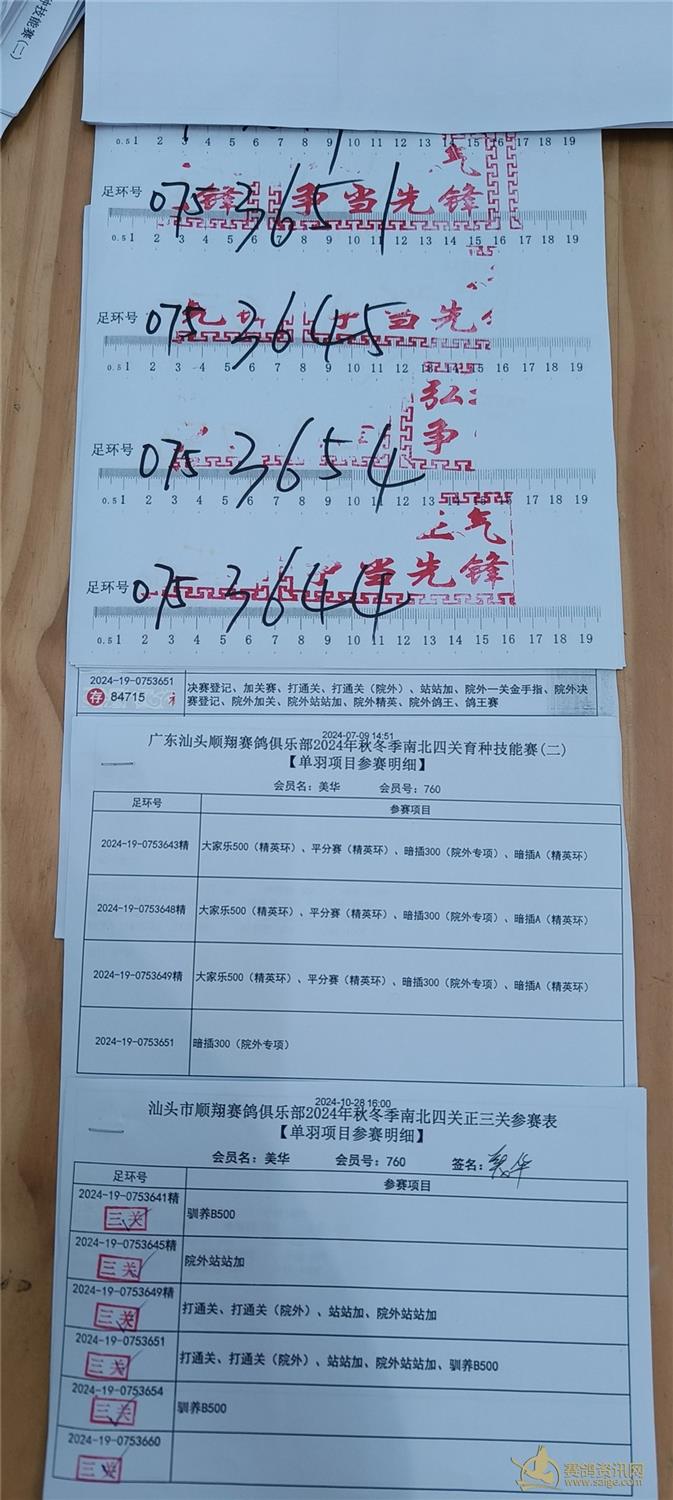 技能赛(二)
0.5 1 2 3 4 5 6 7 8 9 10 11 12 13 14 15 16 17 18 19
气
足环号 0753651
锋 争当先锋
0.5 1 2 3 4 5 6 7 8 9 10 11 12 13 14 15 16 17 18 19
足环号 0753645
当先
0.5 1 2 3 4 5 6 7 8 9 10 11 12 13 14 15 16 17 18 19
弘
争
足环号 0753654
0.5 1 2 3 4 5 6 7 8 9 10 11 12 13 14 15 16 17 18 19
正气
当先锋
足环号 0753644
0.5 1 2 3 4 5 6 7 8 9 10 11 12 13 14 15 16 17 18 19
2024-19-0753651
存 84715
决赛登记、加关赛、打通关、打通关（院外）、站站加、院外一关金手指、院外决
赛登记、院外加关、院外站站加、院外精英、院外鸽王、鸽王赛
2024-07-09 14:51
广东汕头顺翔赛鸽俱乐部2024年秋冬季南北四关育种技能赛(二)
【单羽项目参赛明细】
会员名：美华 会员号：760
足环号 参赛项目
2024-19-0753643精 大家乐500（精英环）、平分赛（精英环）、暗插300（院外专项）、暗插A（精英环）
2024-19-0753648精 大家乐500（精英环）、平分赛（精英环）、暗插300（院外专项）、暗插A（精英环）
2024-19-0753649精 大家乐500（精英环）、平分赛（精英环）、暗插300（院外专项）、暗插A（精英环）
2024-19-0753651 暗插300（院外专项）
2024-10-28 16:00
汕头市顺翔赛鸽俱乐部2024年秋冬季南北四关正三关参赛表
【单羽项目参赛明细】
会员名：美华 会员号：760 签名：美华
足环号 参赛项目
2024-19-0753641精 驯养B500
三关
2024-19-0753645精 院外站站加
三关
2024-19-0753649精 打通关、打通关（院外）、站站加、院外站站加
三关
2024-19-0753651 打通关、打通关（院外）、站站加、院外站站加、驯养B500
三关
2024-19-0753654 驯养B500
三关
2024-19-0753660
三关
赛鸽资讯网
www.saige.com